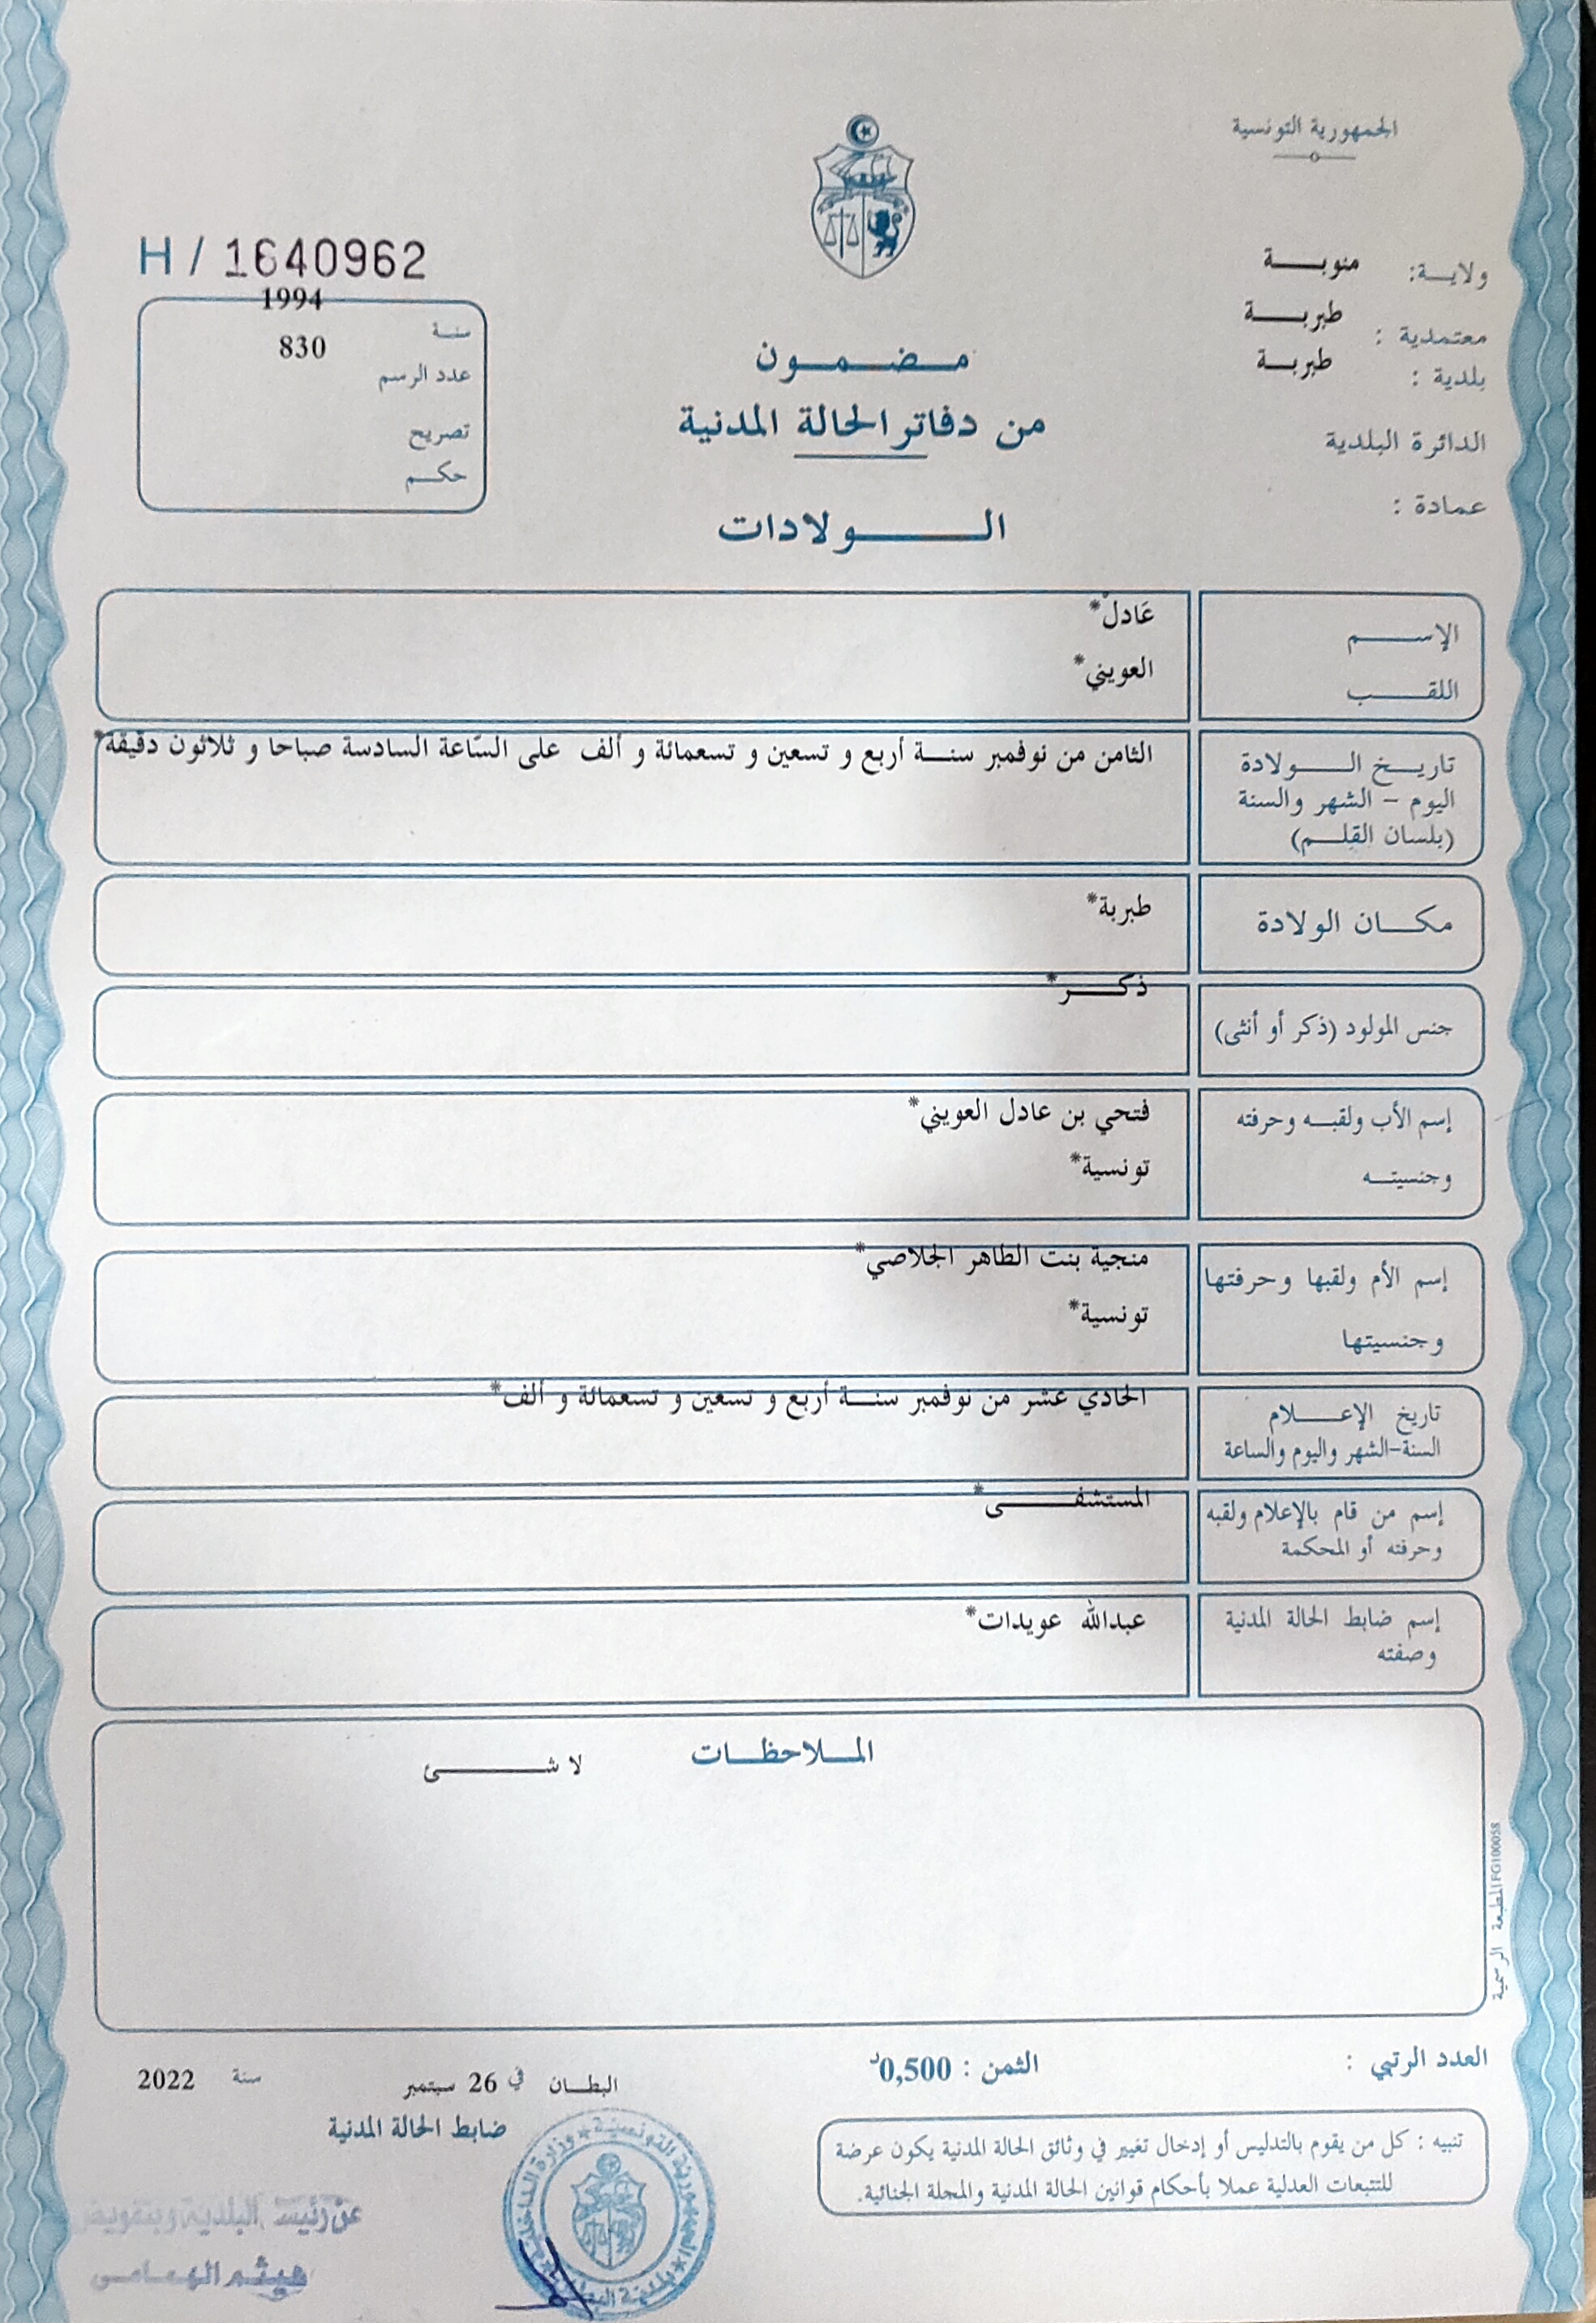 الجمهورية التونسية
ولايـــة: منوبـــــة
معتمدية : طبربـــــة
بلدية : طبربـــــة
الدائرة البلدية
عمادة :
H / 1640962
سنـة 1994
عدد الرسم 830
تصريح
حكـم
مـــضـــمـــون
من دفاتر الحالة المدنية
الـــــــولادات
الإســـــم عَادلْ*
اللقـــــب العويني*
تاريـــخ الـــــولادة الثامن من نوفمبر سنـــة أربع و تسعين و تسعمائة و ألف على السّاعة السادسة صباحا و ثلاثون دقيقة*
اليوم - الشهر والسنة
(بلسان القلـــم)
مكـــان الولادة طبربة*
جنس المولود (ذكر أو أنثى) ذكـــــر*
إسم الأب ولقبـــه وحرفته فتحي بن عادل العويني*
وجنسيتـــه تونسية*
إسم الأم ولقبها وحرفتها منجية بنت الطاهر الجلاصي*
وجنسيتها تونسية*
تاريخ الإعـــــلام الحادي عشر من نوفمبر سنـــة أربع و تسعين و تسعمائة و ألف*
السنة-الشهر واليوم والساعة
إسم من قام بالإعلام ولقبه المستشفـــــــى*
وحرفته أو المحكمة
إسم ضابط الحالة المدنية عبدالله عويدات*
وصفته
المـــلاحظـــات لا شـــــــئ
المطبعة الرسمية FG100058
العدد الرتبي :
الثمن : 0,500د
البطـــان في 26 سبتمبر سنة 2022
ضابط الحالة المدنية
تنبيه : كل من يقوم بالتدليس أو إدخال تغيير في وثائق الحالة المدنية يكون عرضة
للتتبعات العدلية عملا بأحكام قوانين الحالة المدنية والمجلة الجنائية.
الجمهورية التونسية * وزارة الداخلية * بلدية البطان
عن رئيس البلدية وبتفويض
هيثم الهمامي